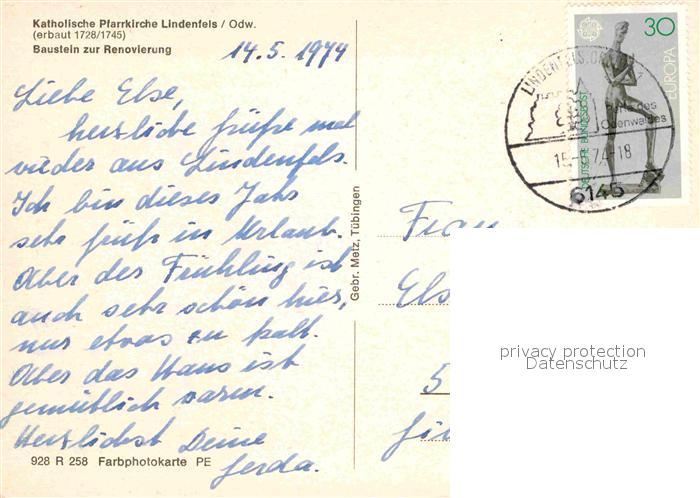 Katholische Pfarrkirche Lindenfels / Odw.
(erbaut 1728/1745)
Baustein zur Renovierung
14.5.1974
Liebe Else,
herzliche Grüße mal
wieder aus Lindenfels.
Ich bin dieses Jahr
sehr früh in Urlaub.
Aber der Frühling ist
auch sehr schön hier,
nur etwas zu kalt.
Aber das Haus ist
gemütlich warm.
Herzlichst Deine
Gerda.
928 R 258 Farbphotokarte PE
Gebr. Metz, Tübingen
30
EUROPA
DEUTSCHE BUNDESPOST
LINDENFELS
des
Odenwaldes
74-18
6145
Frau
Els
5
privacy protection
Datenschutz